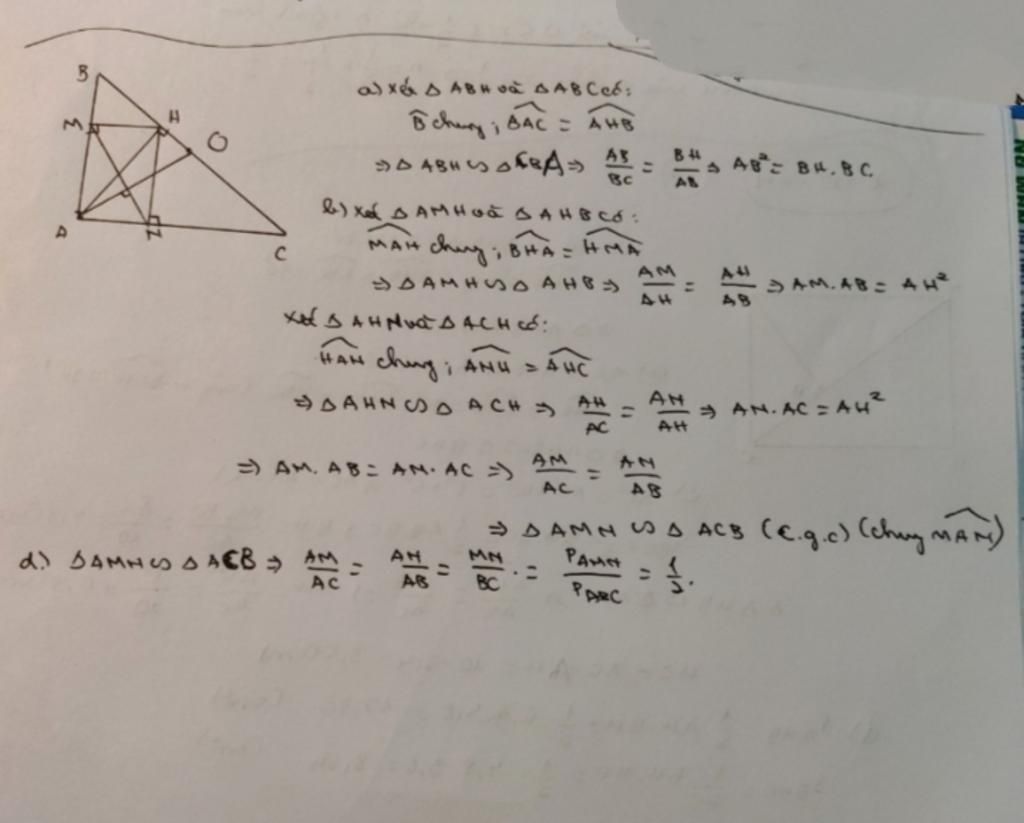 B
M
H
O
A
N
C
a) Xét Δ ABH và Δ ABC có:
B̂ chung; \widehat{BAC} = \widehat{AHB}
⇒ Δ ABH ∽ Δ CBA ⇒ \frac{AB}{BC} = \frac{BH}{AB} ⇒ AB² = BH.BC.
b) Xét Δ AMH và Δ AHB có:
\widehat{MAH} chung; \widehat{BHA} = \widehat{HMA}
⇒ Δ AMH ∽ Δ AHB ⇒ \frac{AM}{AH} = \frac{AH}{AB} ⇒ AM.AB = AH²
Xét Δ AHN và Δ ACH có:
\widehat{HAN} chung; \widehat{ANH} = \widehat{AHC}
⇒ Δ AHN ∽ Δ ACH ⇒ \frac{AH}{AC} = \frac{AN}{AH} ⇒ AN.AC = AH²
⇒ AM.AB = AN.AC ⇒ \frac{AM}{AC} = \frac{AN}{AB}
⇒ Δ AMN ∽ Δ ACB (c.g.c) (chung \widehat{MAN})
d) Δ AMN ∽ Δ ACB ⇒ \frac{AM}{AC} = \frac{AN}{AB} = \frac{MN}{BC} . = \frac{P_{AMN}}{P_{ABC}} = \frac{1}{2}.